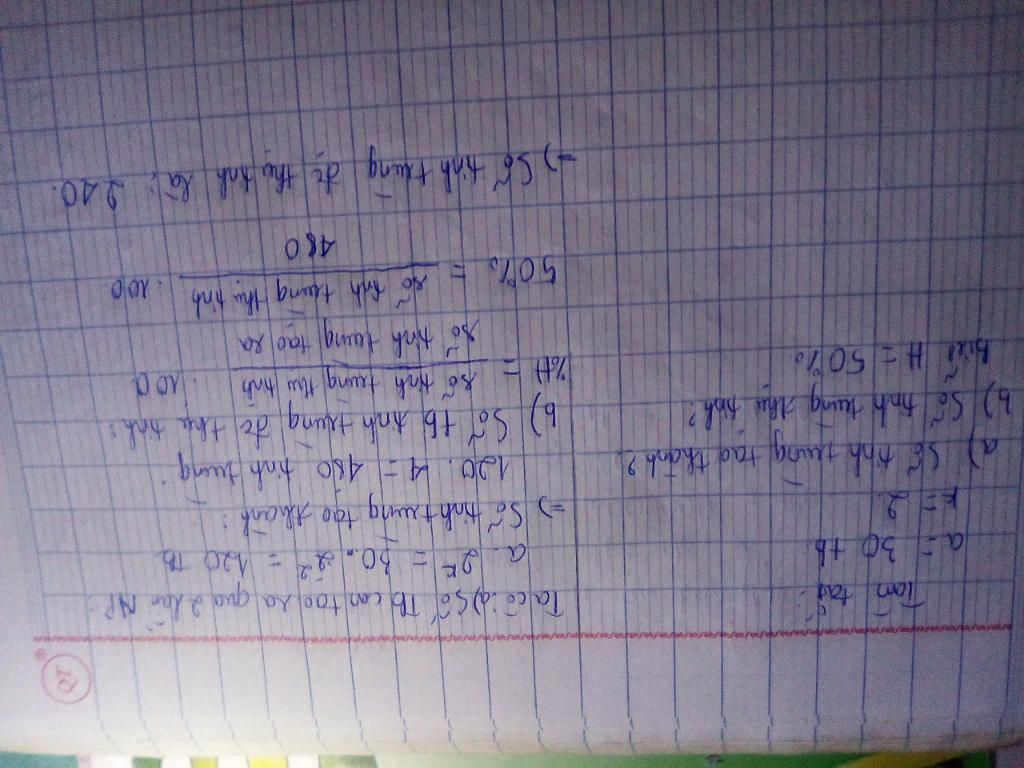 Tóm tắt:
a = 30 tb
k = 2.
a) Số tinh trùng tạo thành?
b) Số tinh trùng thụ tinh?
biết H = 50%
Ta có: a) Số Tb con tạo ra qua 2 lần NP:
a. 2ᵏ = 30. 2² = 120 Tb
=) Số tinh trùng tạo thành:
120. 4 = 480 tinh trùng
b) Số tb tinh trùng đc thụ tinh:
%H = số tinh trùng thụ tinh / số tinh trùng tạo ra . 100
50% = số tinh trùng thụ tinh / 480 . 100
=) Số tinh trùng đc thụ tinh là: 240.